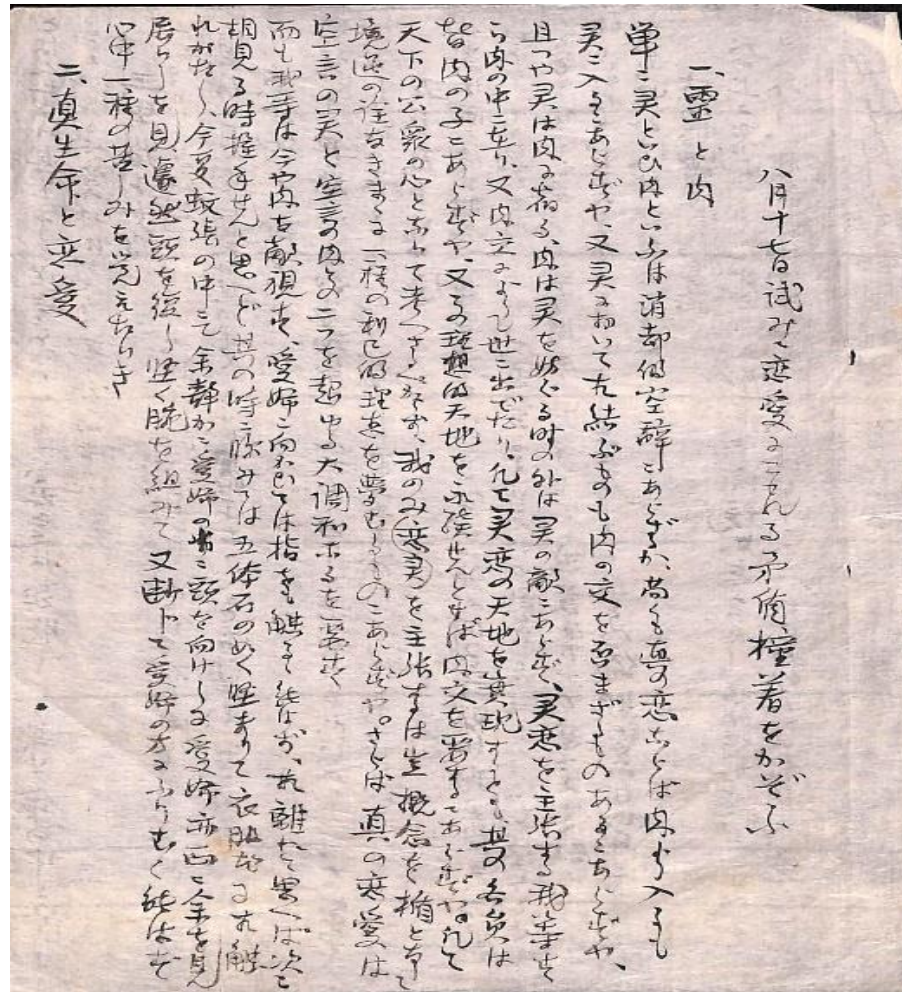 八月十七日試みに恋愛に於ける矛盾、撞着をかぞふ
一、靈と肉
単に灵といひ肉といふは消却的空辞にあらざるか、尚くも真の恋ならば肉より入るも
灵に入るにあらずや、又灵に於いて相結ぶものも肉の交を否まざるものあるにあらずや、
且つや灵は肉に宿る、肉は灵を妨ぐる時の外は灵の敵にあらず、灵恋を主張する我等すら
肉の中に在り、又肉交によりて世に出でたり。凡て灵恋の天地を実現するとも、其の各員は
皆肉の子にあらずや、又その理想的天地を永続せんとせば肉交を要するにあらずや。凡て
天下の公衆の心となりて考へざるべからず、我のみ恋灵を主張するは生概念を楯となして
境遇の注なきままに一種の利己的理想を夢むるものにあらずや。さらば真の恋愛は
空言の灵と空言の肉との二つを超ゆる大調和なるを要す、
而も我等は今や肉を敵視す、愛婦に向ひては指をも触るる能はず、相離れて思へば次に
相見る時握手せんと思へど其の時に臨みては五体石の如く堅まりて衣服だに相触
れがたし、今夏蚊張の中にて余静かに愛婦の方に頭を向けしに愛婦亦西に余を見
居りしを見遽然頭を後し堅く腕を組みて又断じて愛婦の方にふりむく能はず
心中一種の苦しみを覚えたりき
二、真生命と恋愛